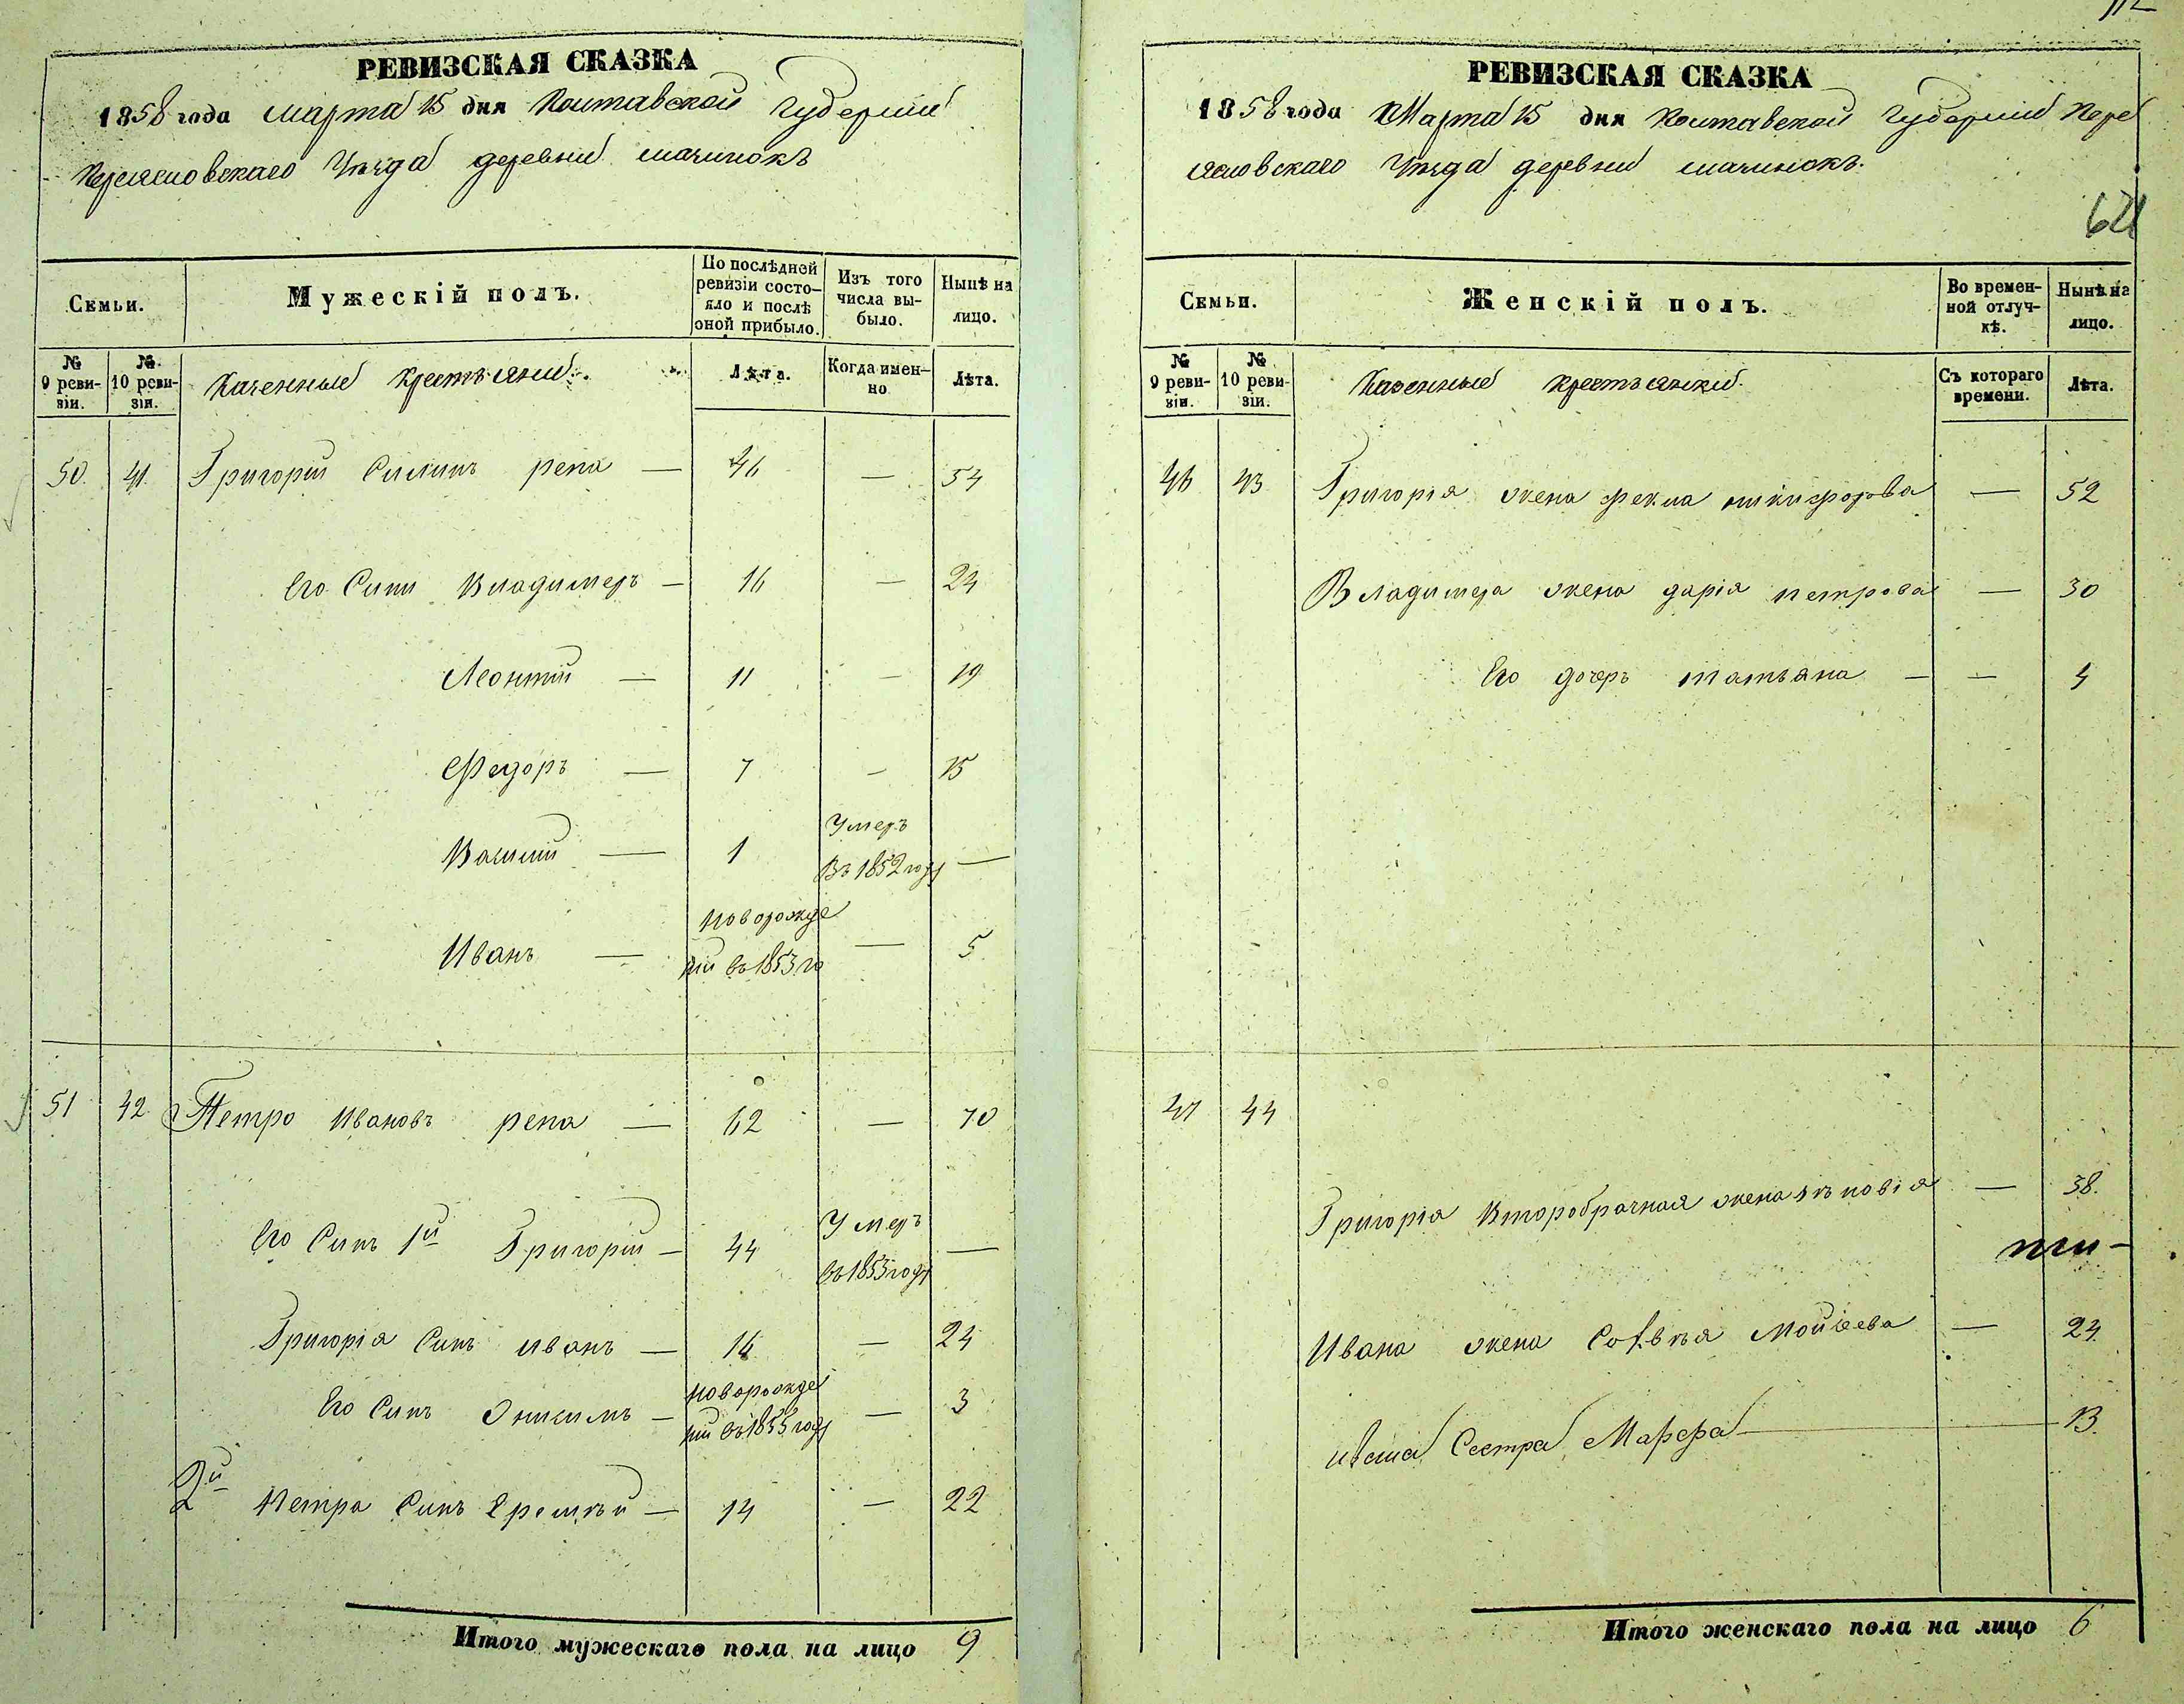 РЕВИЗСКАЯ СКАЗКА
1858 года марта 15 дня Полтавской Губернии
Переяславскаго Уезда деревни
Семьи.
Мужескій полъ.
По послѣдней ревизіи состояло и послѣ оной прибыло.
Изъ того числа выбыло.
Нынѣ на лицо.
№ 9 ревизіи.
№ 10 ревизіи.
Казенные крестьяни.
Лѣта.
Когда именно
Лѣта.
50. 41. Григорій Силинъ репа — 46 — 54
Его Сини Владимеръ — 16 — 24
Леонтій — 11 — 19
Федоръ — 7 — 15
Василій — 1 Умеръ въ 1852 году —
Иванъ — новорожденій въ 1853 го — 5
51 42 Петро Ивановъ репа — 62 — 70
Его Синъ 1й Григорій — 44 Умеръ въ 1853 году —
Григорія Синъ иванъ — 16 — 24
Его Синъ — новорожденій въ 1855 году — 3
2й Петра Синъ Еремѣй — 14 — 22
Итого мужескаго пола на лицо 9
РЕВИЗСКАЯ СКАЗКА
1858 года Марта 15 дня Полтавской Губерніи Пере
яславскаго Уезда деревни
621
Семьи.
Женскій полъ.
Во временной отлучкѣ.
Нынѣ на лицо.
№ 9 ревизіи.
№ 10 ревизіи.
Казенные крестьянки.
Съ котораго времени.
Лѣта.
46 43 Григорія жена фекла никифорова — 52
Владимера жена дарія петрова — 30
Его дочерь татьяна — — 4
47 44
Григорія Второбрачная жена — 38.
Ивана жена Мойсеева — 24
Сестра Марфа — 13.
Итого женскаго пола на лицо 6